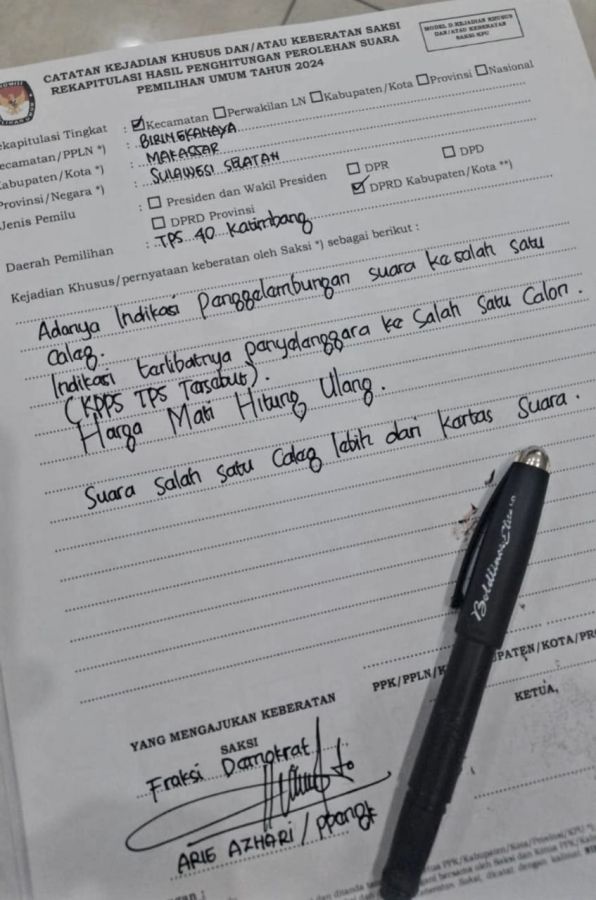 CATATAN KEJADIAN KHUSUS DAN/ATAU KEBERATAN SAKSI
REKAPITULASI HASIL PENGHITUNGAN PEROLEHAN SUARA
PEMILIHAN UMUM TAHUN 2024
MODEL D.KEJADIAN KHUSUS
DAN/ATAU KEBERATAN
SAKSI-KPU
ekapitulasi Tingkat : Kecamatan Perwakilan LN Kabupaten/Kota Provinsi Nasional
ecamatan/PPLN *) : BIRINGKANAYA
abupaten/Kota *) : MAKASSAR
Provinsi/Negara *) : SULAWESI SELATAN
Jenis Pemilu : Presiden dan Wakil Presiden DPR DPD
DPRD Provinsi DPRD Kabupaten/Kota **)
Daerah Pemilihan : TPS 40 Katimbang
Kejadian Khusus/pernyataan keberatan oleh Saksi *) sebagai berikut :
Adanya Indikasi Penggelambungan suara ke salah satu
Caleg.
Indikasi terlibatnya penyelenggara ke Salah Satu Calon.
(KPPS TPS Tersebut).
Harga Mati Hitung Ulang.
Suara Salah satu Caleg lebih dari Kertas Suara.
Boldliner
PPK/PPLN/K
PATEN/KOTA/PRO
KETUA,
YANG MENGAJUKAN KEBERATAN
SAKSI
Fraksi Demokrat
ARIE AZHARI /